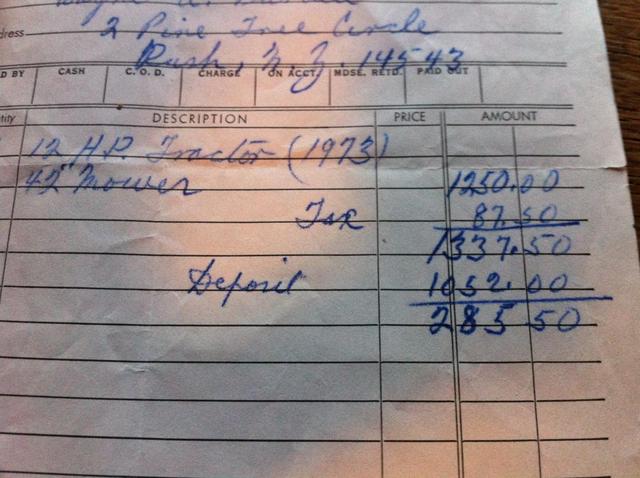 dress 2 Pine Tree Circle
Rush, N.Y. 14543
D BY CASH C. O. D. CHARGE ON ACCT. MDSE. RETD. PAID OUT
tity DESCRIPTION PRICE AMOUNT
12 H.P. Tractor (1973)
42" Mower 1250.00
Tax 87.50
1337.50
Deposit 1052.00
285.50